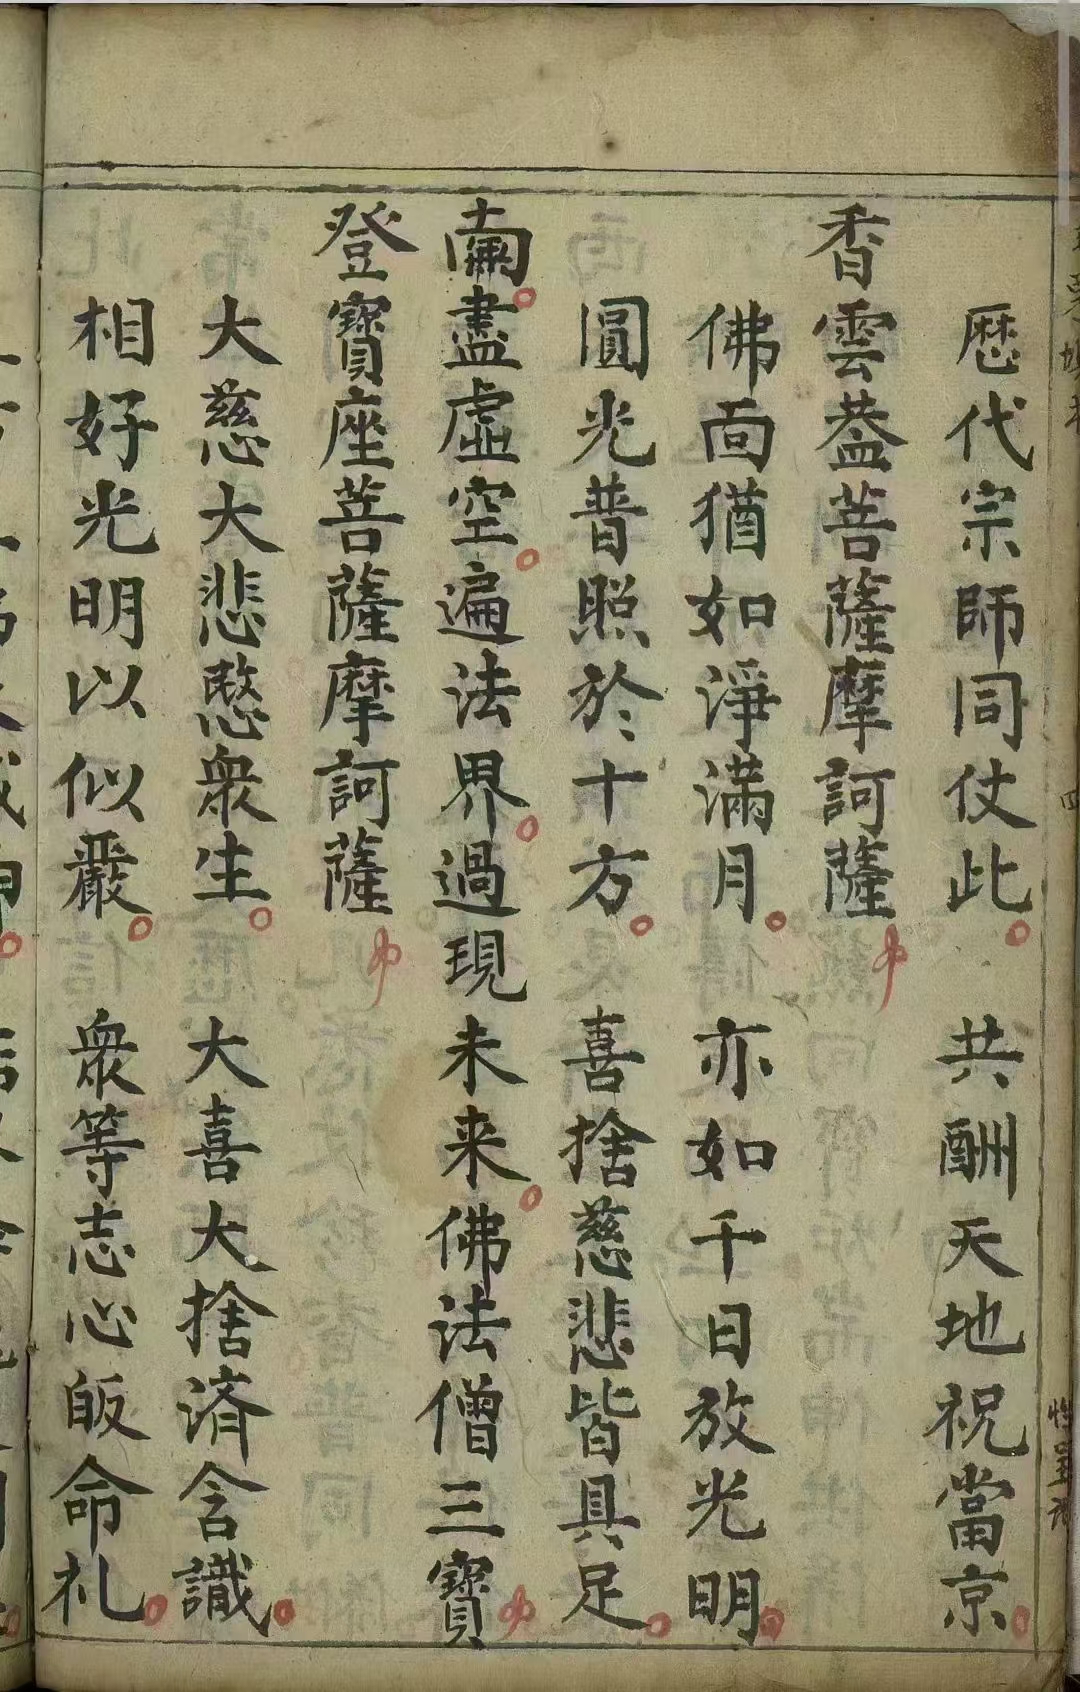 歷代宗師同仗此。共酬天地祝當京。
香雲葢菩薩摩訶薩
佛面猶如淨滿月。亦如千日放光明。
圓光普照於十方。喜捨慈悲皆具足。
南無。盡虛空。遍法界。過現未来。佛法僧三寶
登寶座菩薩摩訶薩
大慈大悲愍衆生。大喜大捨済含識。
相好光明以似嚴。衆等志心皈命礼。